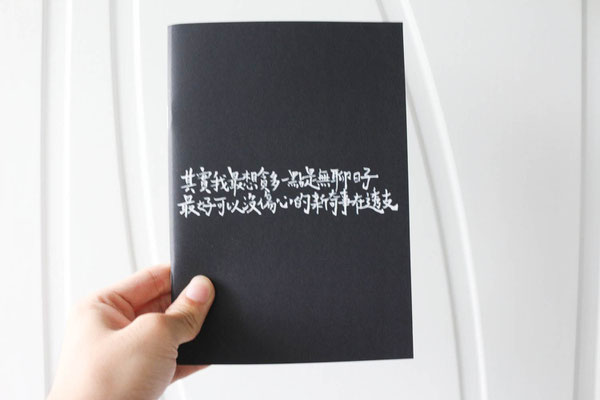 其實我最想貪多一點是無聊日子
最好可以沒傷心的新奇事在透支